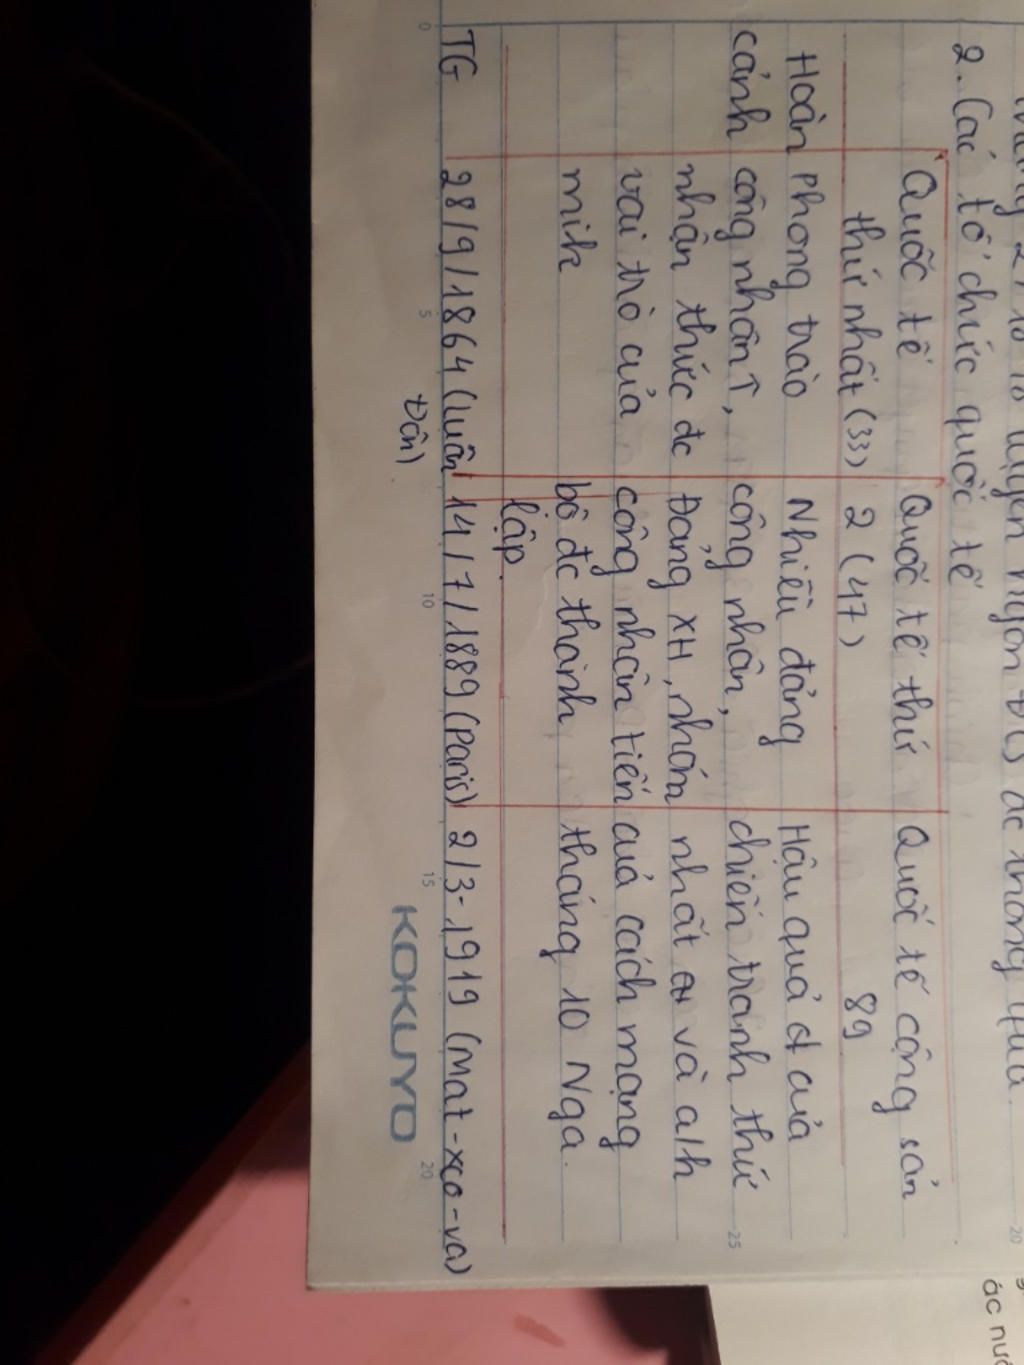 2. Các tổ chức quốc tế
Quốc tế
thứ nhất (33)
Quốc tế thứ
2 (47)
Quốc tế cộng sản
89
Hoàn
cảnh
phong trào
công nhân ↑,
nhận thức đc
vai trò của
mih
Nhiều đảng
công nhân,
Đảng XH, nhóm
công nhân tiến
bộ đc thành
lập.
Hậu quả of của
chiến tranh thứ
nhất và a/h
của cách mạng
tháng 10 Nga.
TG
28/9/1864 (Luân
Đôn)
14/7/1889 (Paris)
2/3-1919 (Mat-xco-va)
0 5 10 15 20
KOKUYO
25
20
ác nướ